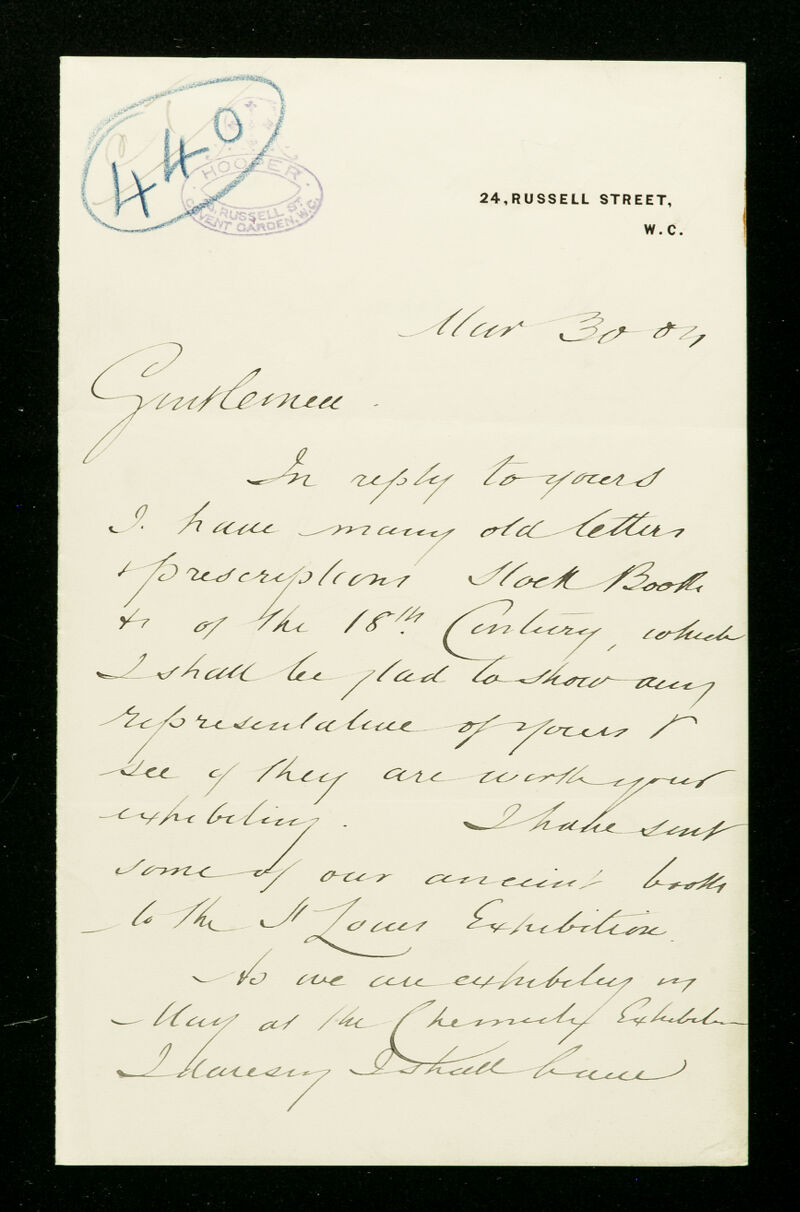 440
HOOPER
RUSSELL ST.
COVENT GARDEN. W.C.
24, RUSSELL STREET,
W.C.
Mar 30 04
Gentlemen.
In reply to yours
I have many old letters
& prescriptions Stock Books
&c of the 18th Century, which
I shall be glad to show any
representative of yours &
see if they are worth your
exhibiting. I have sent
some of our ancient books
to the St Louis Exhibition.
As we are exhibiting in
May at the Chemists Exhibition
I daresay I shall have